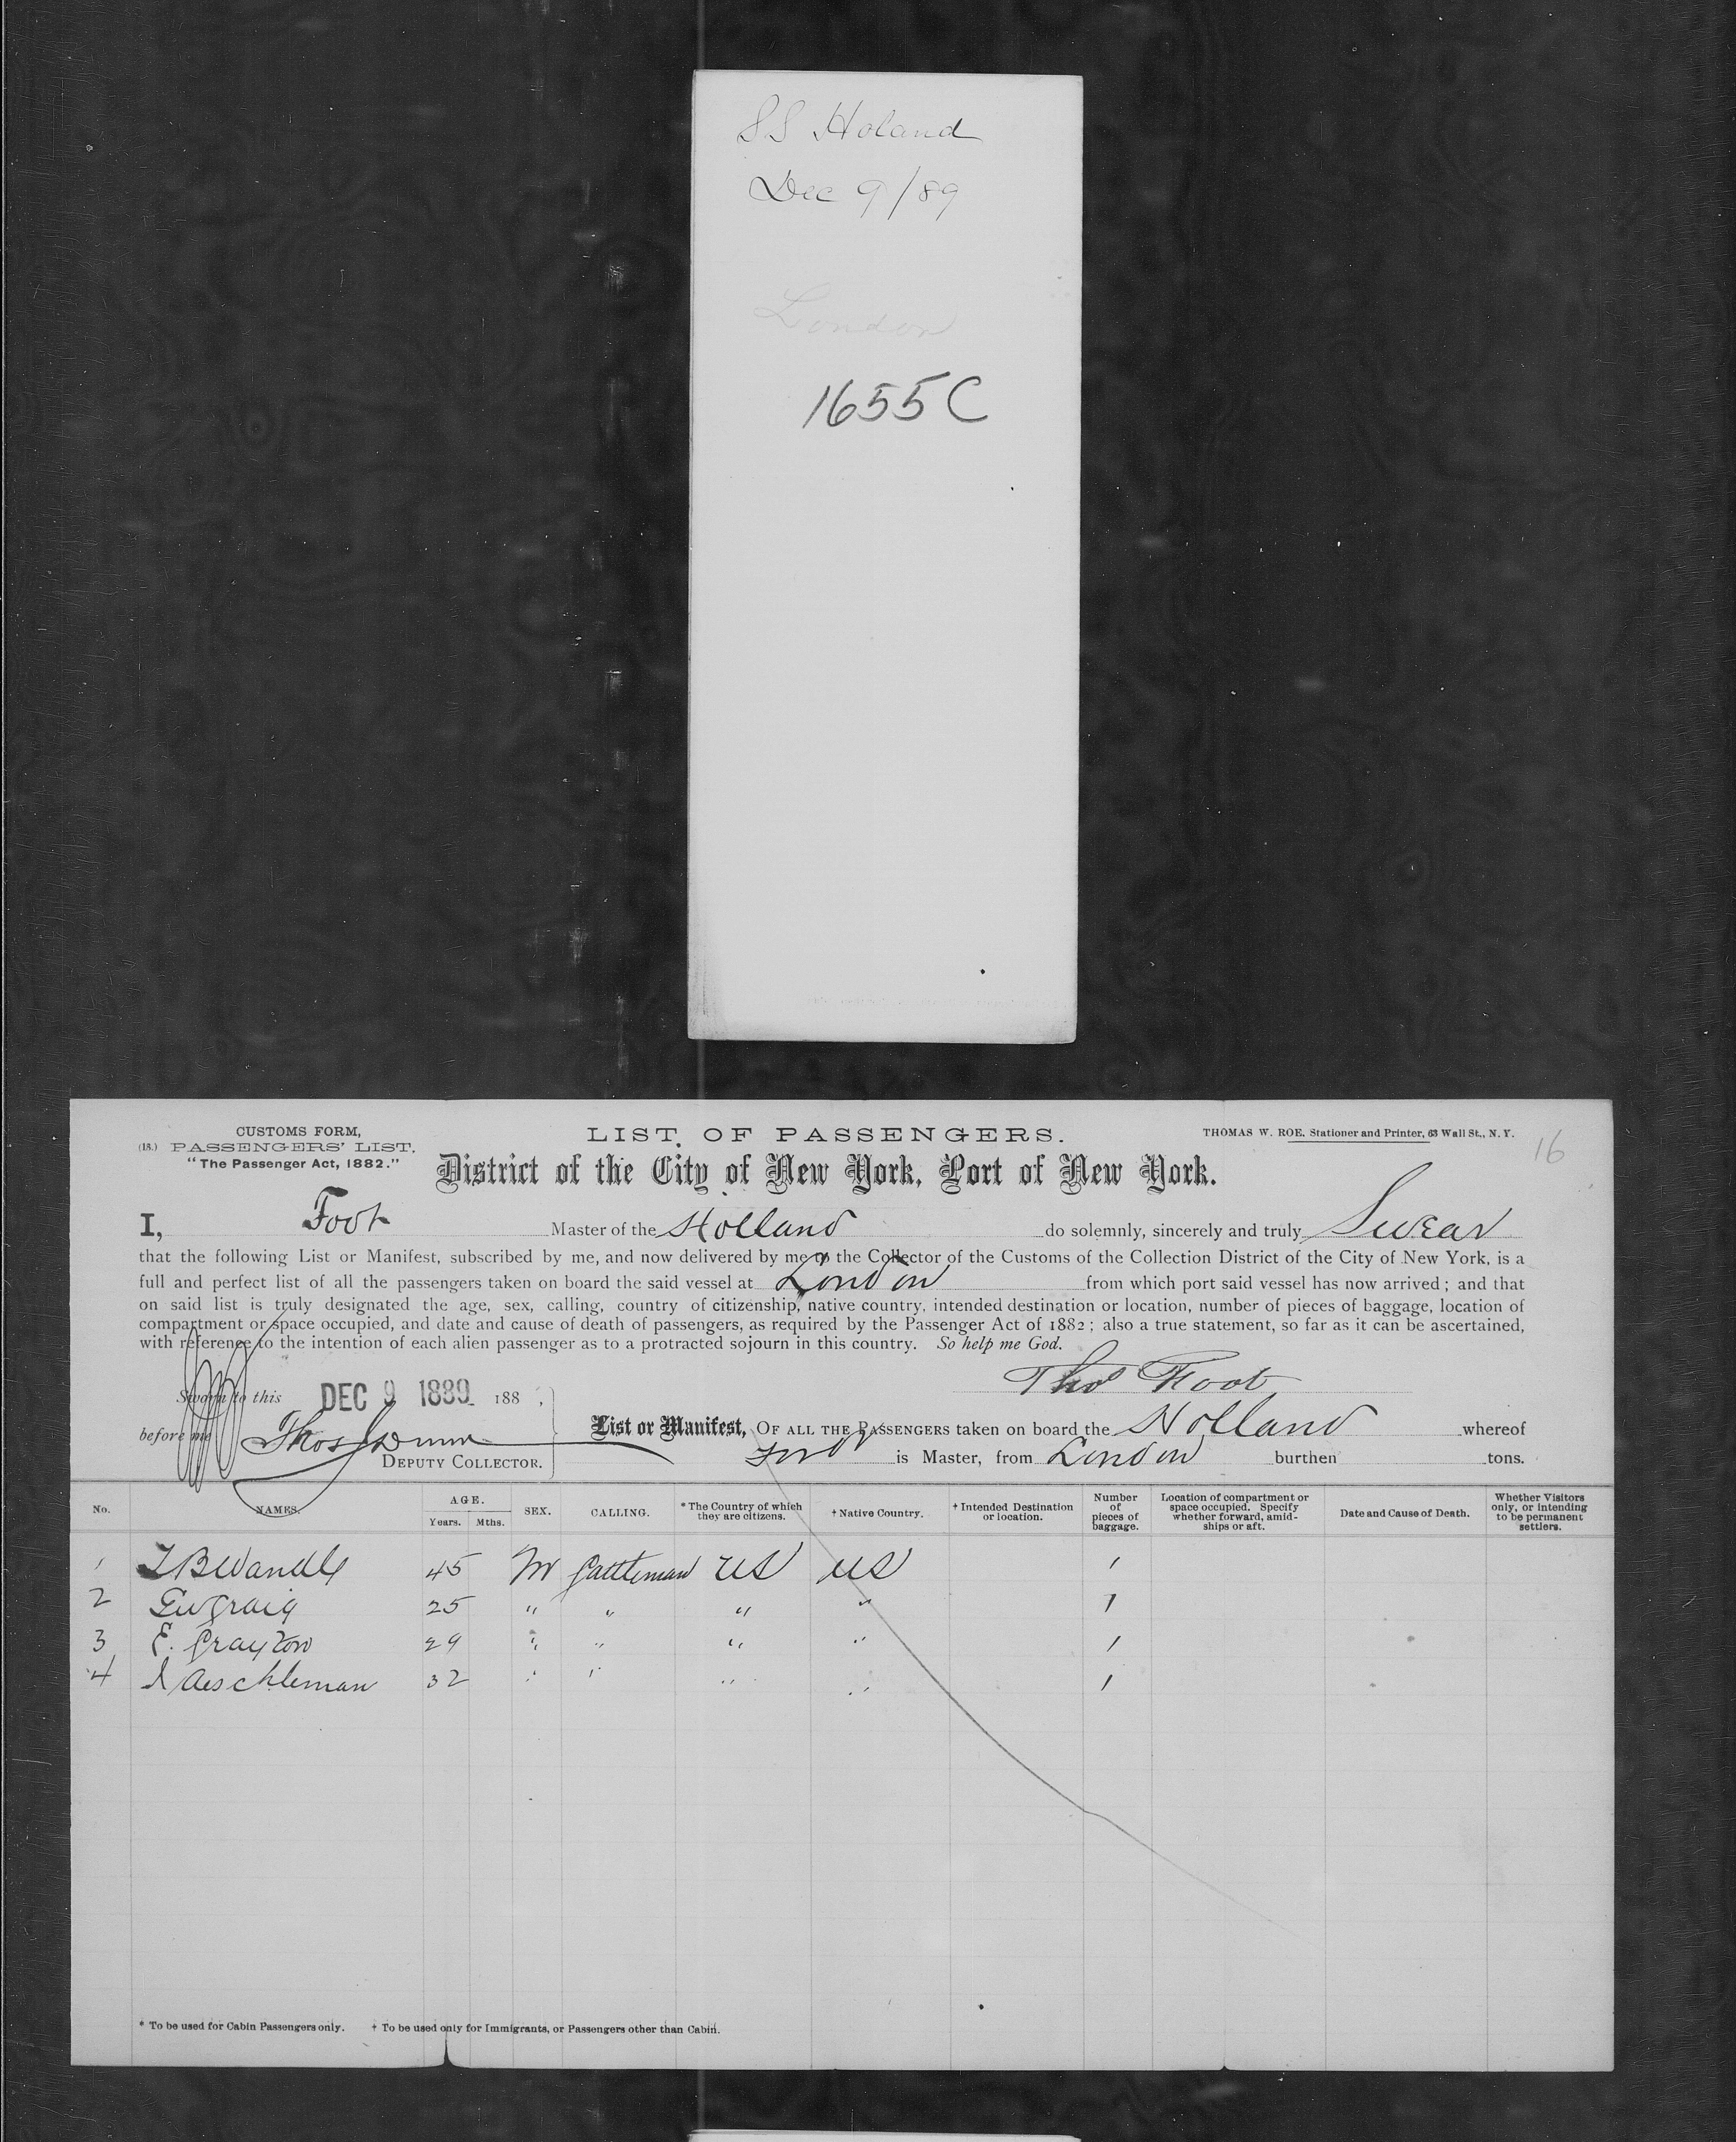 SS Holand
Dec 9/89
London
1655C
CUSTOMS FORM,
(18.) PASSENGERS' LIST.
"The Passenger Act, 1882."
LIST OF PASSENGERS.
THOMAS W. ROE, Stationer and Printer, 63 Wall St., N. Y.
16
District of the City of New York, Port of New York.
I, Foot Master of the Holland do solemnly, sincerely and truly Swear
that the following List or Manifest, subscribed by me, and now delivered by me to the Collector of the Customs of the Collection District of the City of New York, is a
full and perfect list of all the passengers taken on board the said vessel at London from which port said vessel has now arrived; and that
on said list is truly designated the age, sex, calling, country of citizenship, native country, intended destination or location, number of pieces of baggage, location of
compartment or space occupied, and date and cause of death of passengers, as required by the Passenger Act of 1882; also a true statement, so far as it can be ascertained,
with reference to the intention of each alien passenger as to a protracted sojourn in this country. So help me God.
Thos Foot
Sworn to this DEC 9 1889 188 ,
before me Thos Dunn
DEPUTY COLLECTOR.
List or Manifest, OF ALL THE PASSENGERS taken on board the Holland whereof
Foot is Master, from London burthen tons.
No. NAMES. AGE. Years. Mths. SEX. CALLING. * The Country of which they are citizens. † Native Country. † Intended Destination or location. Number of pieces of baggage. Location of compartment or space occupied. Specify whether forward, amidships or aft. Date and Cause of Death. Whether Visitors only, or intending to be permanent settlers.
1 B Wandle 45 M Cattleman US US 1
2 Craig 25 " " " " 1
3 E. Crayton 29 " " " " 1
4 Aeschleman 32 " " " " 1
* To be used for Cabin Passengers only. † To be used only for Immigrants, or Passengers other than Cabin.